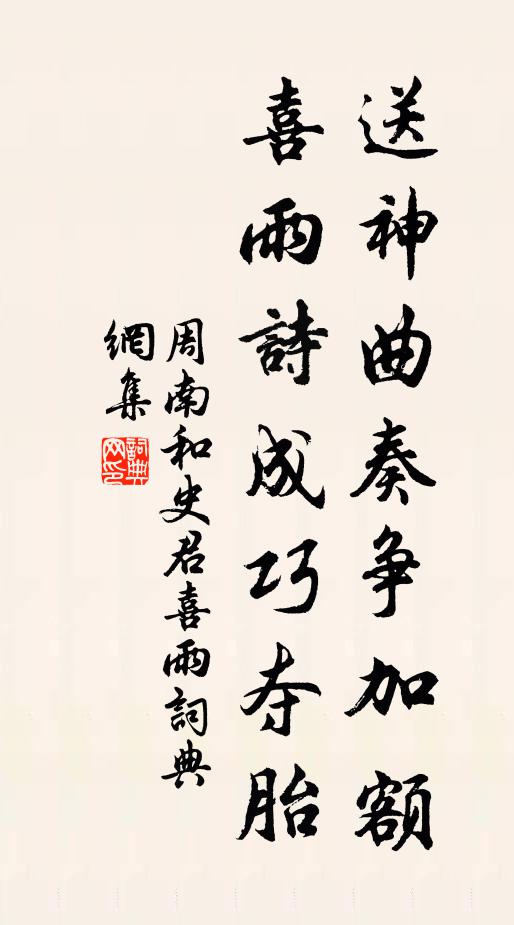 送神曲奏争加額
喜雨詩成巧夺胎
周南和史君喜雨詞典
網集
詞典网印